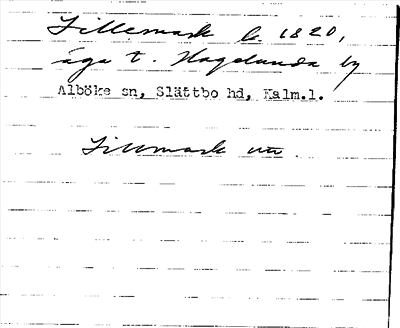 Lillemark b. 1820,
äga t. Hagelunda by
Alböke sn, Slättbo hd, Kalm.l.
Lillmark utt.